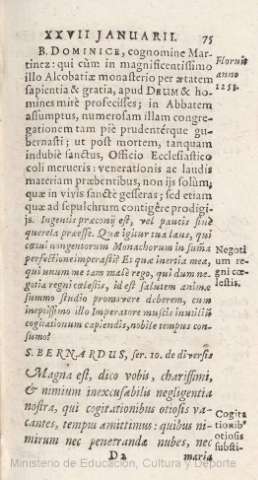 XXVII JANUARII. 75
B. DOMINICE, cognomine Mar-
tinez: qui cùm in magnificentissimo
illo Alcobatiæ monasterio per ætatem
sapientia & gratia, apud DEUM & ho-
mines mirè profecisses; in Abbatem
assumptus, numerosam illam congre-
gationem tam piè prudentérque gu-
bernasti; ut post mortem, tanquam
indubiè sanctus, Officio Ecclesiastico
coli merueris: venerationis ac laudis
materiam præbentibus, non ijs solùm,
quæ in vivis sanctè gesseras; sed etiam
quæ ad sepulchrum contigêre prodigi-
js. Ingentis præconij est, vel paucis sine
querela præesse. Quæ igitur tua laus, qui
cœtui nongentorum Monachorum in summa
perfectione imperasti? Et quæ inertia mea,
qui unum me tam malè rego, qui dum ne-
gotia regni cœlestis, id est salutem animæ
summo studio promovere deberem, cum
ineptissimo illo Imperatore muscis inutiliũ
cogitationum capiendis, nobile tempus con-
sumo?
Floruit
anno
1258.
Negoti
um re-
gni cœ-
lestis.
S. BERNARDUS, ser. 10. de diversis
Magna est, dico vobis, charissimi,
& nimium inexcusabilis negligentia
nostra, qui cogitationibus otiosis va-
cantes, tempus amittimus: quibus ni-
mirum nec penetrandæ nubes, nec
Cogita
tionibꝰ
otiosis
substi-
D 2 maria
Ministerio de Educación, Cultura y Deporte